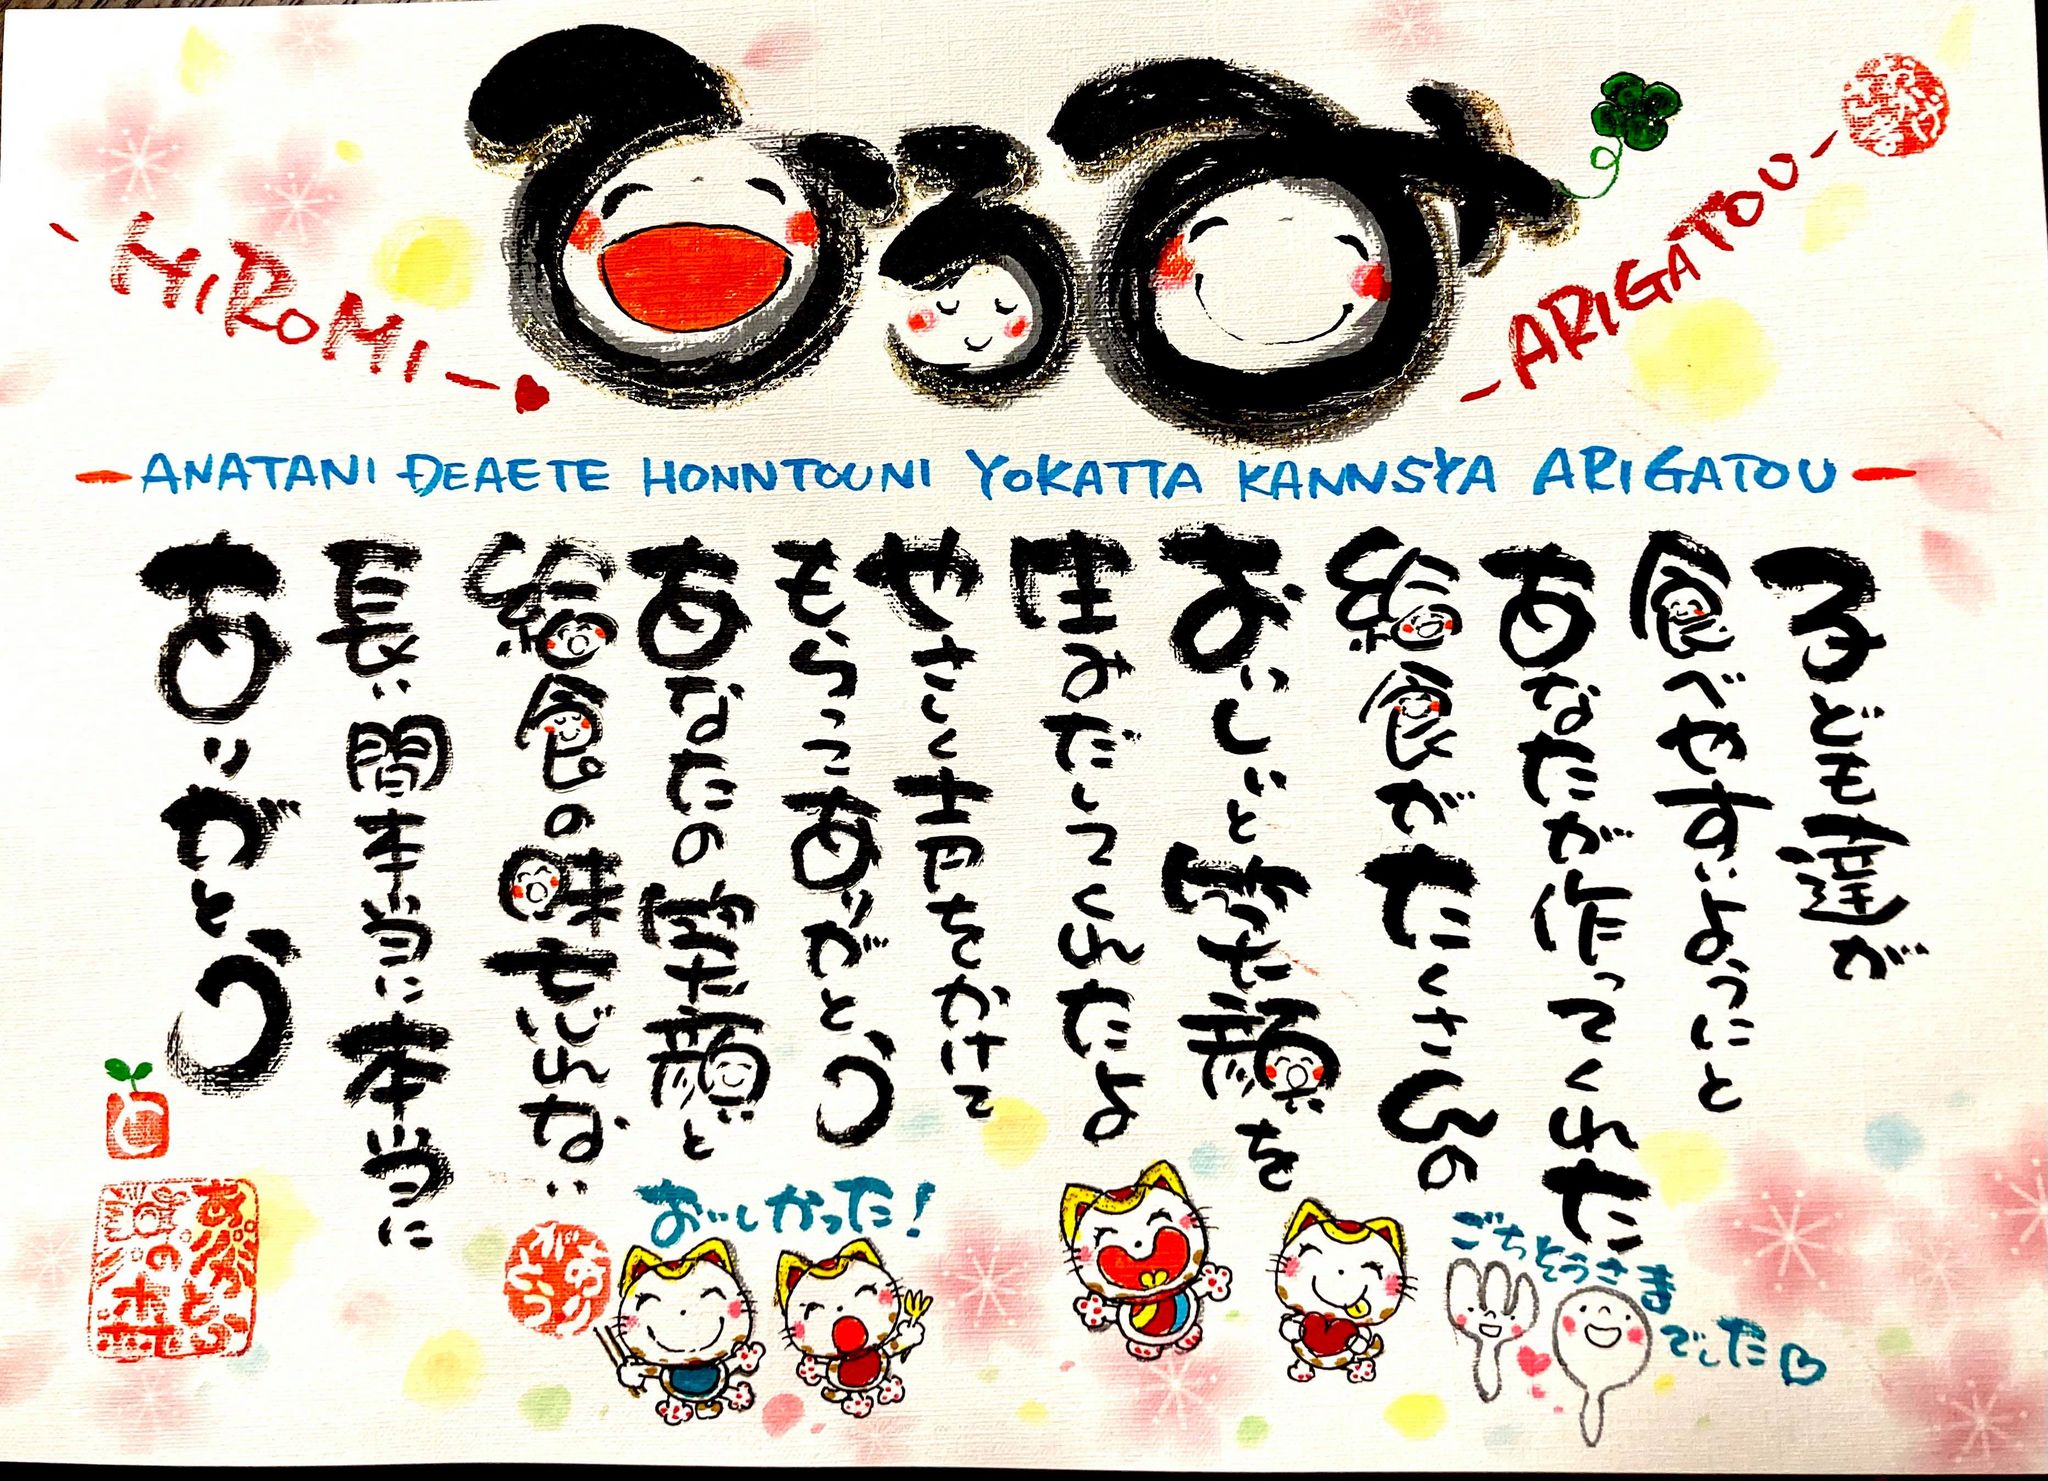 ひろみ
-HIROMI-
-ARIGATOU-
-ANATANI DEAETE HONNTOUNI YOKATTA KANNSYA ARIGATOU-
子ども達が
食べやすいようにと
あなたが作ってくれた
給食がたくさんの
おいしいと笑顔を
生みだしてくれたよ
やさしく声をかけて
もらってありがとう
あなたの笑顔と
給食の味忘れない
長い間本当に本当に
ありがとう
おいしかった!
ごちそうさま
でした
ありがとう
ありがとう
の森